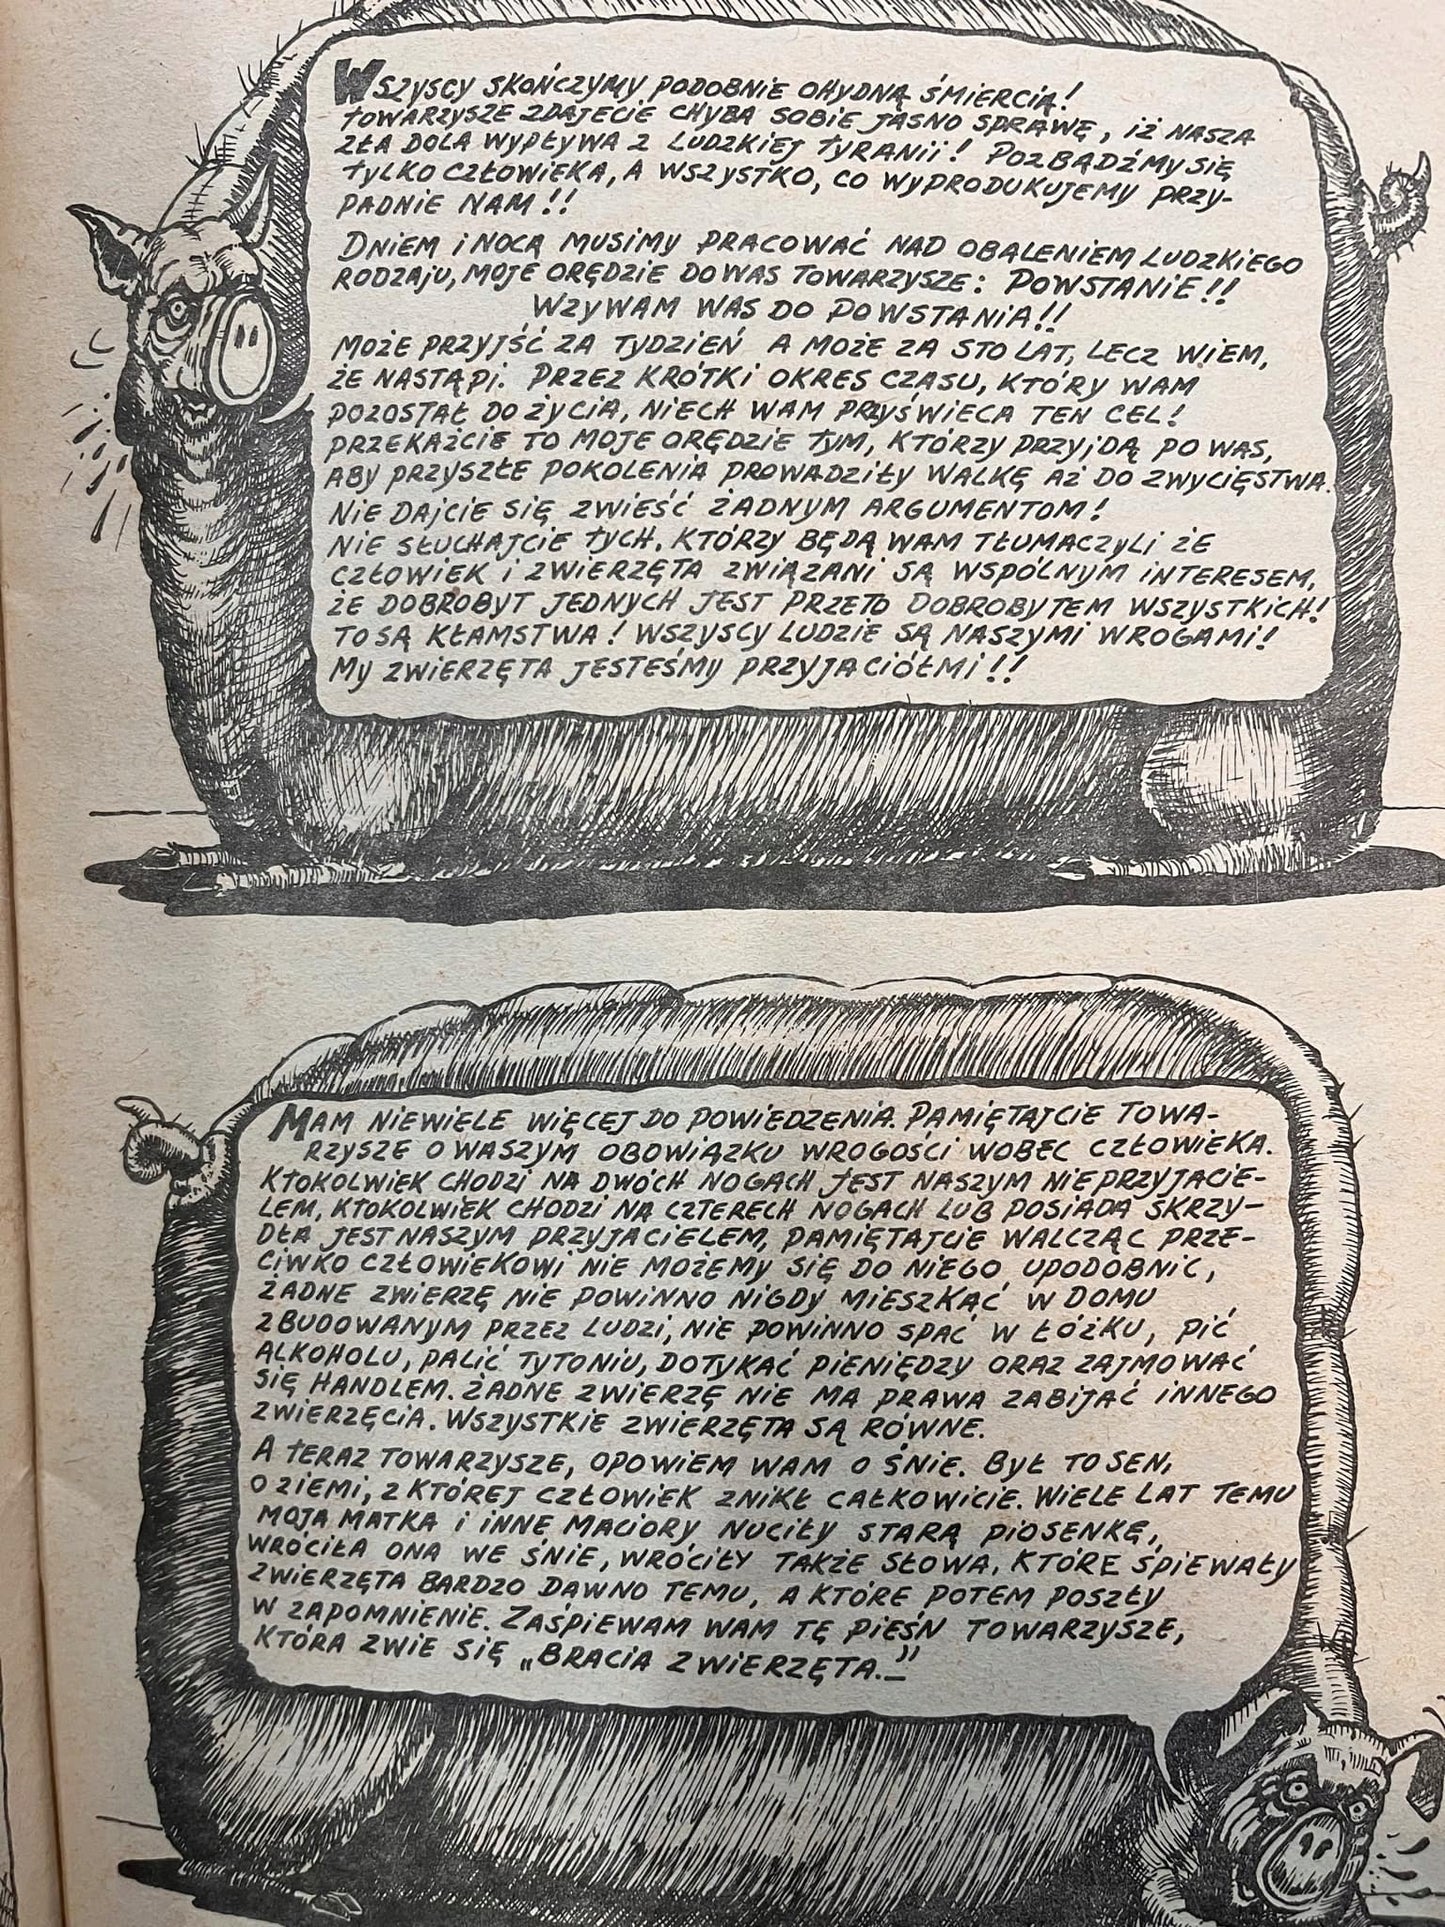 WSZYSCY SKOŃCZYMY PODOBNIE OHYDNĄ ŚMIERCIĄ!
TOWARZYSZE ZDAJECIE CHYBA SOBIE JASNO SPRAWĘ, IŻ NASZA
ZŁA DOLA WYPŁYWA Z LUDZKIEJ TYRANII! POZBĄDŹMY SIĘ
TYLKO CZŁOWIEKA, A WSZYSTKO, CO WYPRODUKUJEMY PRZY-
PADNIE NAM!!
DNIEM I NOCĄ MUSIMY PRACOWAĆ NAD OBALENIEM LUDZKIEGO
RODZAJU, MOJE ORĘDZIE DO WAS TOWARZYSZE: POWSTANIE!!
WZYWAM WAS DO POWSTANIA!!
MOŻE PRZYJŚĆ ZA TYDZIEŃ A MOŻE ZA STO LAT, LECZ WIEM,
ŻE NASTĄPI. PRZEZ KRÓTKI OKRES CZASU, KTÓRY WAM
POZOSTAŁ DO ŻYCIA, NIECH WAM PRZYŚWIECA TEN CEL!
PRZEKAŻCIE TO MOJE ORĘDZIE TYM, KTÓRZY PRZYJDĄ PO WAS,
ABY PRZYSZŁE POKOLENIA PROWADZIŁY WALKĘ AŻ DO ZWYCIĘSTWA.
NIE DAJCIE SIĘ ZWIEŚĆ ŻADNYM ARGUMENTOM!
NIE SŁUCHAJCIE TYCH, KTÓRZY BĘDĄ WAM TŁUMACZYLI ŻE
CZŁOWIEK I ZWIERZĘTA ZWIĄZANI SĄ WSPÓLNYM INTERESEM,
ŻE DOBROBYT JEDNYCH JEST PRZETO DOBROBYTEM WSZYSTKICH!
TO SĄ KŁAMSTWA! WSZYSCY LUDZIE SĄ NASZYMI WROGAMI!
MY ZWIERZĘTA JESTEŚMY PRZYJACIÓŁMI!!
MAM NIEWIELE WIĘCEJ DO POWIEDZENIA. PAMIĘTAJCIE TOWA-
RZYSZE O WASZYM OBOWIĄZKU WROGOŚCI WOBEC CZŁOWIEKA.
KTOKOLWIEK CHODZI NA DWÓCH NOGACH JEST NASZYM NIEPRZYJACIE-
LEM, KTOKOLWIEK CHODZI NA CZTERECH NOGACH LUB POSIADA SKRZY-
DŁA JEST NASZYM PRZYJACIELEM, PAMIĘTAJCIE WALCZĄC PRZE-
CIWKO CZŁOWIEKOWI NIE MOŻEMY SIĘ DO NIEGO UPODOBNIĆ,
ŻADNE ZWIERZĘ NIE POWINNO NIGDY MIESZKAĆ W DOMU
ZBUDOWANYM PRZEZ LUDZI, NIE POWINNO SPAĆ W ŁÓŻKU, PIĆ
ALKOHOLU, PALIĆ TYTONIU, DOTYKAĆ PIENIĘDZY ORAZ ZAJMOWAĆ
SIĘ HANDLEM. ŻADNE ZWIERZĘ NIE MA PRAWA ZABIJAĆ INNEGO
ZWIERZĘCIA. WSZYSTKIE ZWIERZĘTA SĄ RÓWNE.
A TERAZ TOWARZYSZE, OPOWIEM WAM O ŚNIE. BYŁ TO SEN,
O ZIEMI, Z KTÓREJ CZŁOWIEK ZNIKŁ CAŁKOWICIE. WIELE LAT TEMU
MOJA MATKA I INNE MACIORY NUCIŁY STARĄ PIOSENKĘ,
WRÓCIŁA ONA WE ŚNIE, WRÓCIŁY TAKŻE SŁOWA, KTÓRE ŚPIEWAŁY
ZWIERZĘTA BARDZO DAWNO TEMU, A KTÓRE POTEM POSZŁY
W ZAPOMNIENIE. ZAŚPIEWAM WAM TĘ PIEŚŃ TOWARZYSZE,
KTÓRA ZWIE SIĘ „BRACIA ZWIERZĘTA."